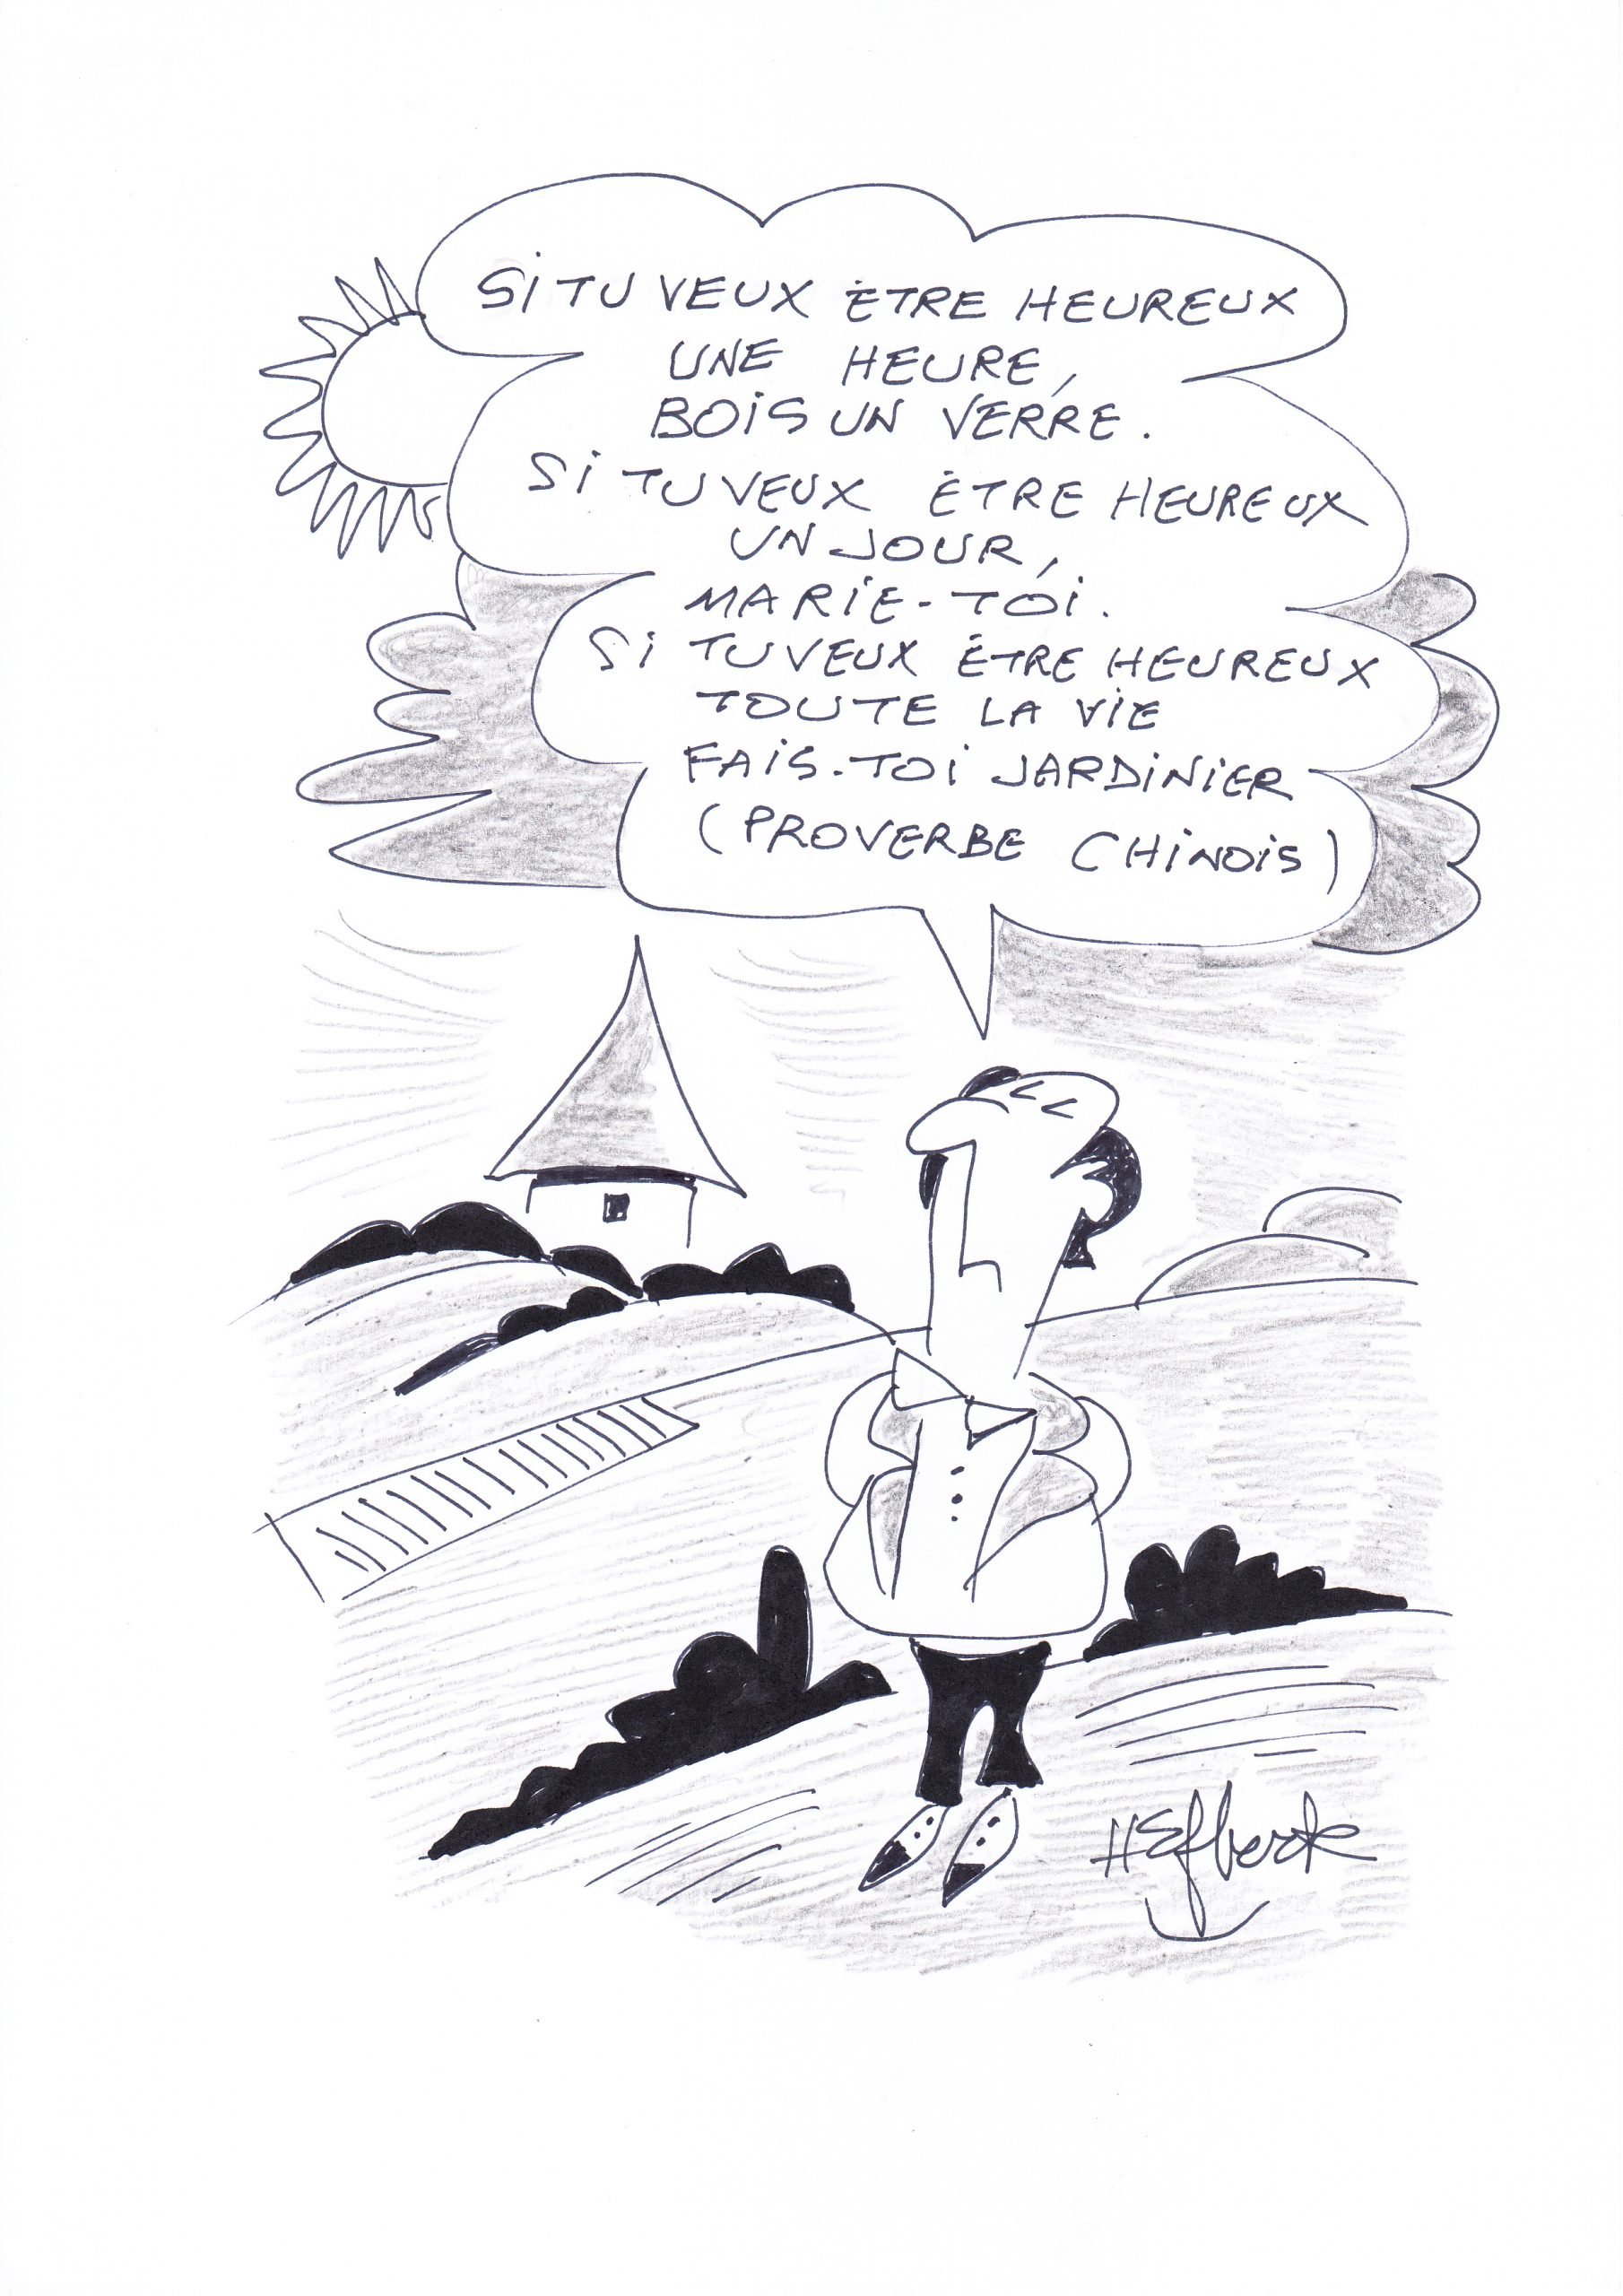 SI TU VEUX ÊTRE HEUREUX
UNE HEURE,
BOIS UN VERRE.
SI TU VEUX ÊTRE HEUREUX
UN JOUR,
MARIE-TOI.
SI TU VEUX ÊTRE HEUREUX
TOUTE LA VIE
FAIS-TOI JARDINIER
(PROVERBE CHINOIS)